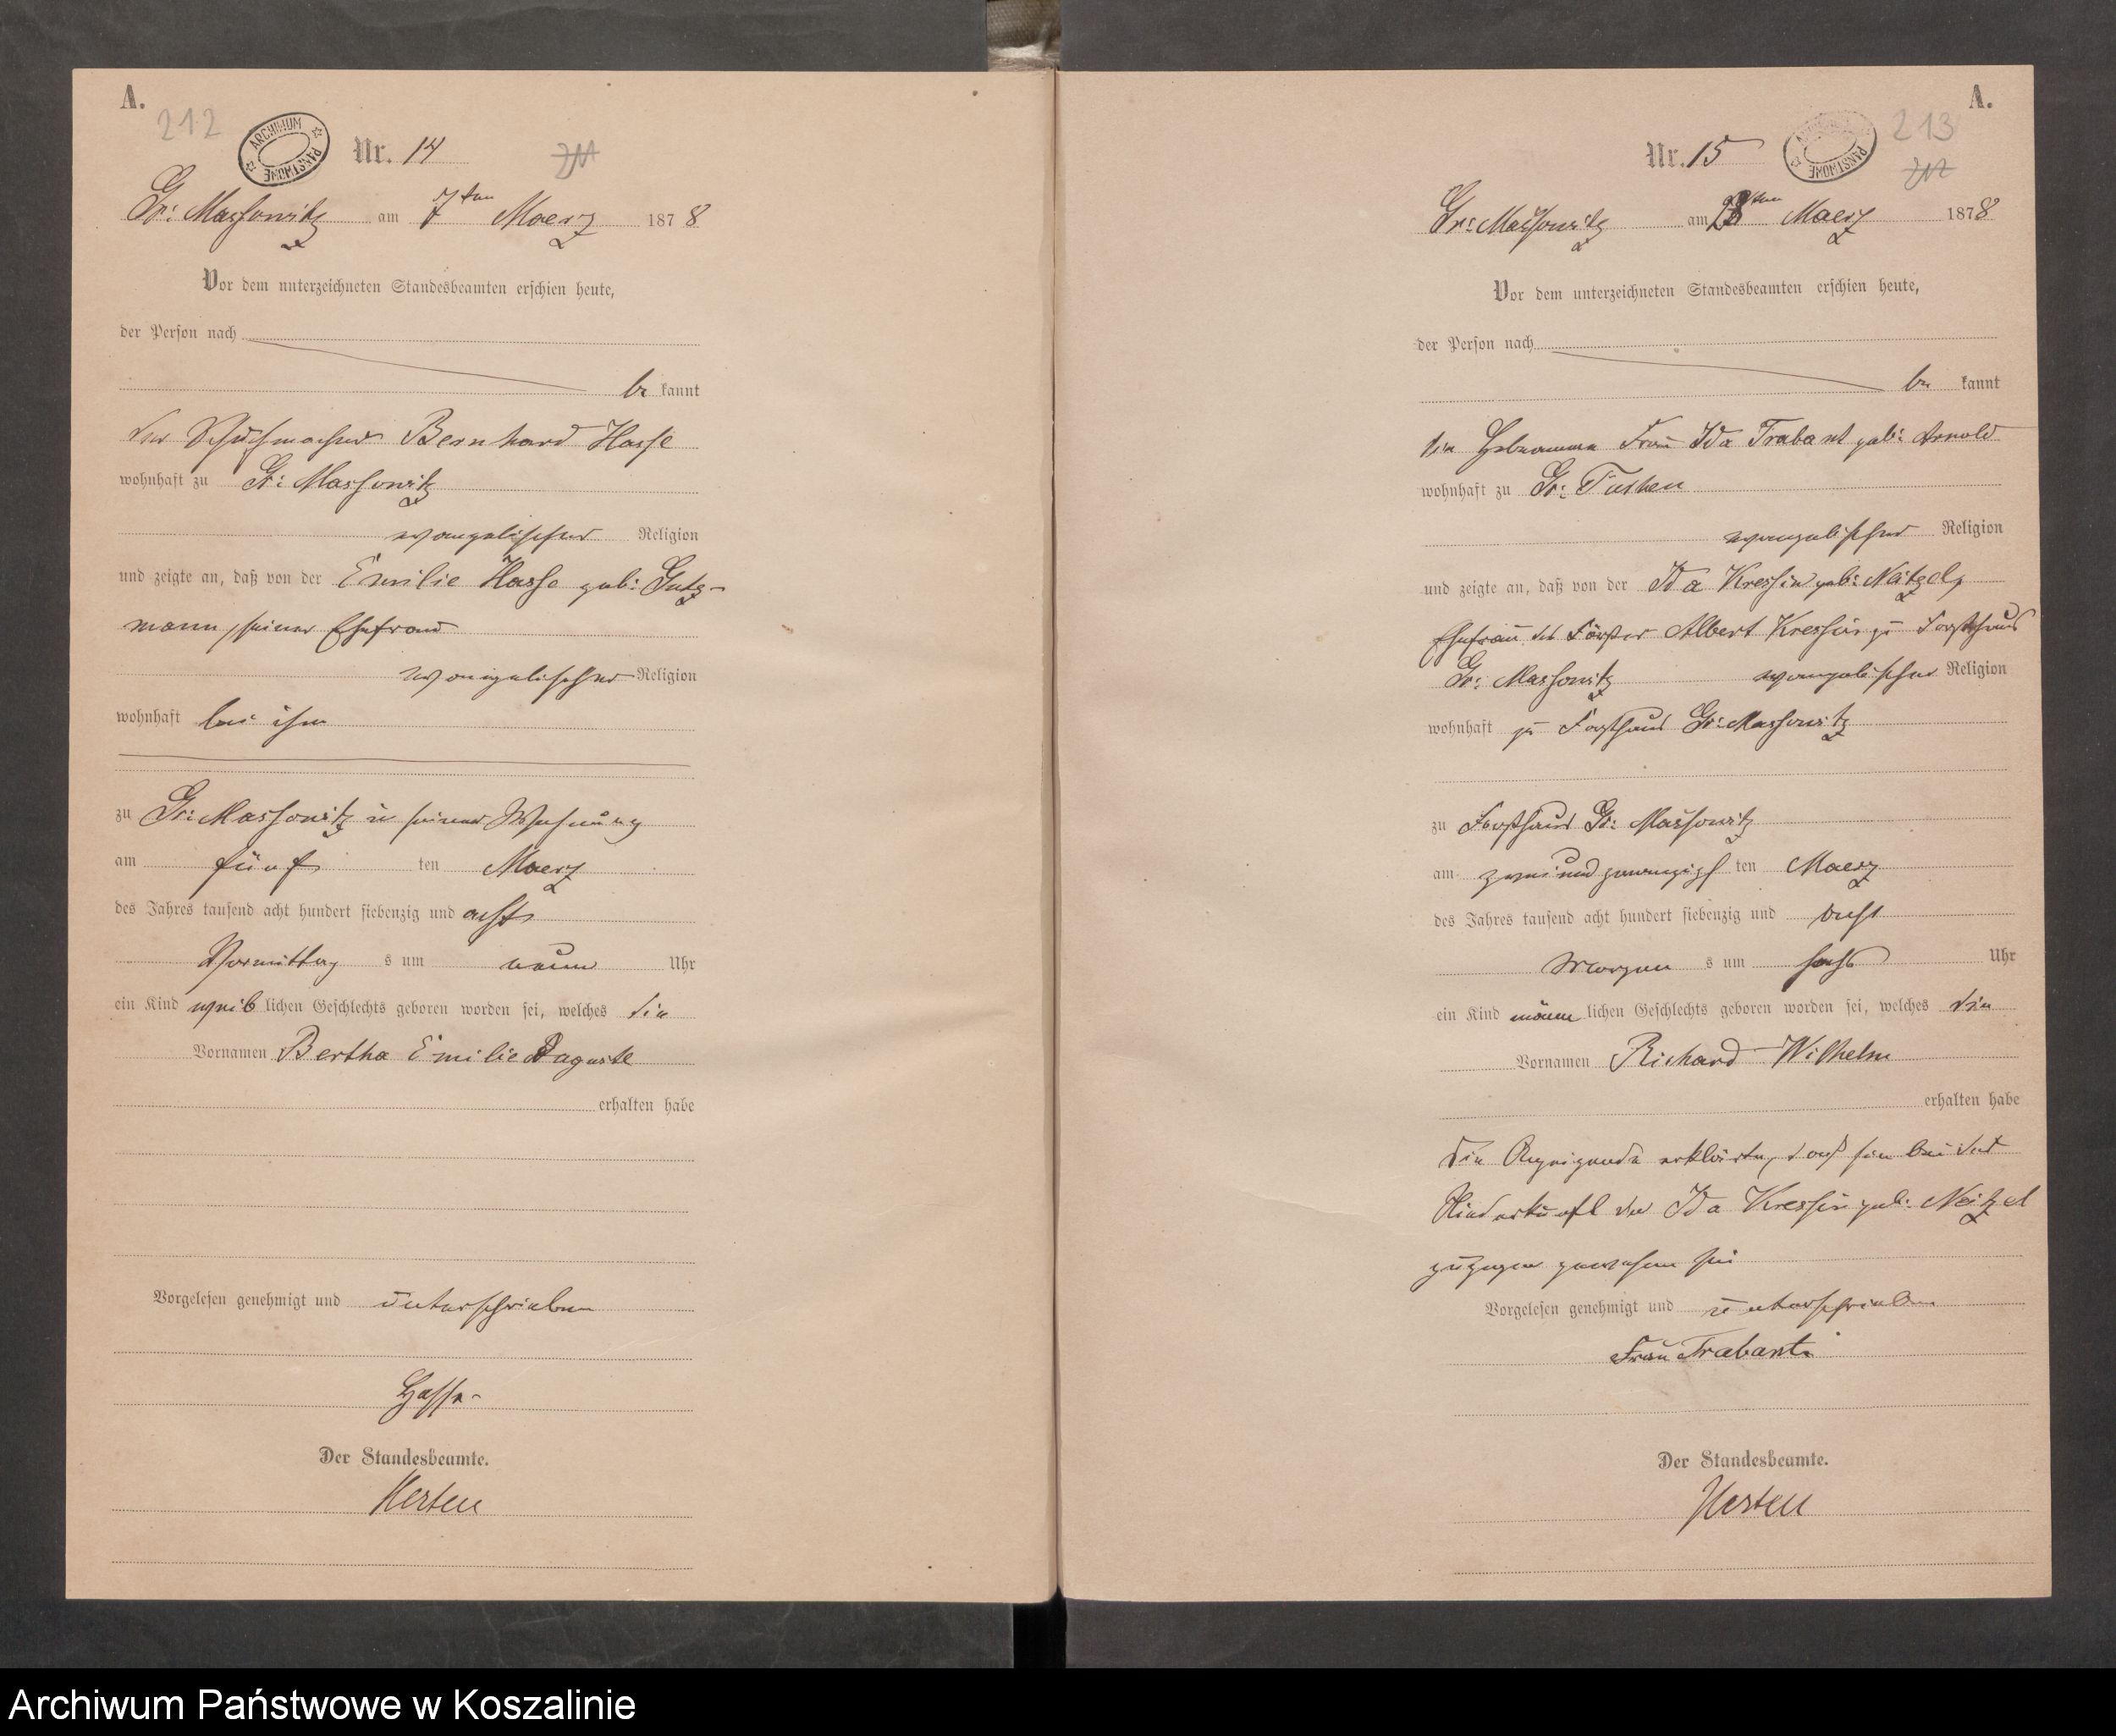 A.
212
ARCHIWUM PAŃSTWOWE
Nr. 14
211
Gr: Massowitz am 7ten Maerz 1878
Vor dem unterzeichneten Standesbeamten erschien heute,
der Person nach
be kannt
der Schuhmacher Bernhard Hasse
wohnhaft zu Gr: Massowitz
evangelischer Religion
und zeigte an, daß von der Emilie Hasse geb: Gutz-
mann, seiner Ehefrau
evangelischer Religion
wohnhaft bei ihm
zu Gr: Massowitz in seiner Wohnung
am fünf ten Maerz
des Jahres tausend acht hundert siebenzig und acht
Vormittag s um neun Uhr
ein Kind weib lichen Geschlechts geboren worden sei, welches die
Vornamen Bertha Emilie Auguste
erhalten habe
Vorgelesen genehmigt und unterschrieben
Hasse
Der Standesbeamte.
Hersen
A.
213
ARCHIWUM PAŃSTWOWE
Nr. 15
212
Gr: Massowitz am ten Maerz 1878
Vor dem unterzeichneten Standesbeamten erschien heute,
der Person nach
be kannt
die Hebamme Frau Ida Trabant geb: Arnold
wohnhaft zu Gr: Tuchen
evangelischer Religion
und zeigte an, daß von der Ida Kressin geb: Neitzel,
Ehefrau des Förster Albert Kressin zu Forsthaus
Gr: Massowitz evangelischer Religion
wohnhaft zu Forsthaus Gr: Massowitz
zu Forsthaus Gr: Massowitz
am zweiundzwanzigs ten Maerz
des Jahres tausend acht hundert siebenzig und acht
Morgen s um sechs Uhr
ein Kind männ lichen Geschlechts geboren worden sei, welches die
Vornamen Richard Wilhelm
erhalten habe
die Anzeigende erklärte, daß sie bei der
Niederkunft der Ida Kressin geb: Neitzel
zugegen gewesen sei
Vorgelesen genehmigt und unterschrieben
Frau Trabant.
Der Standesbeamte.
Hersen
Archiwum Państwowe w Koszalinie